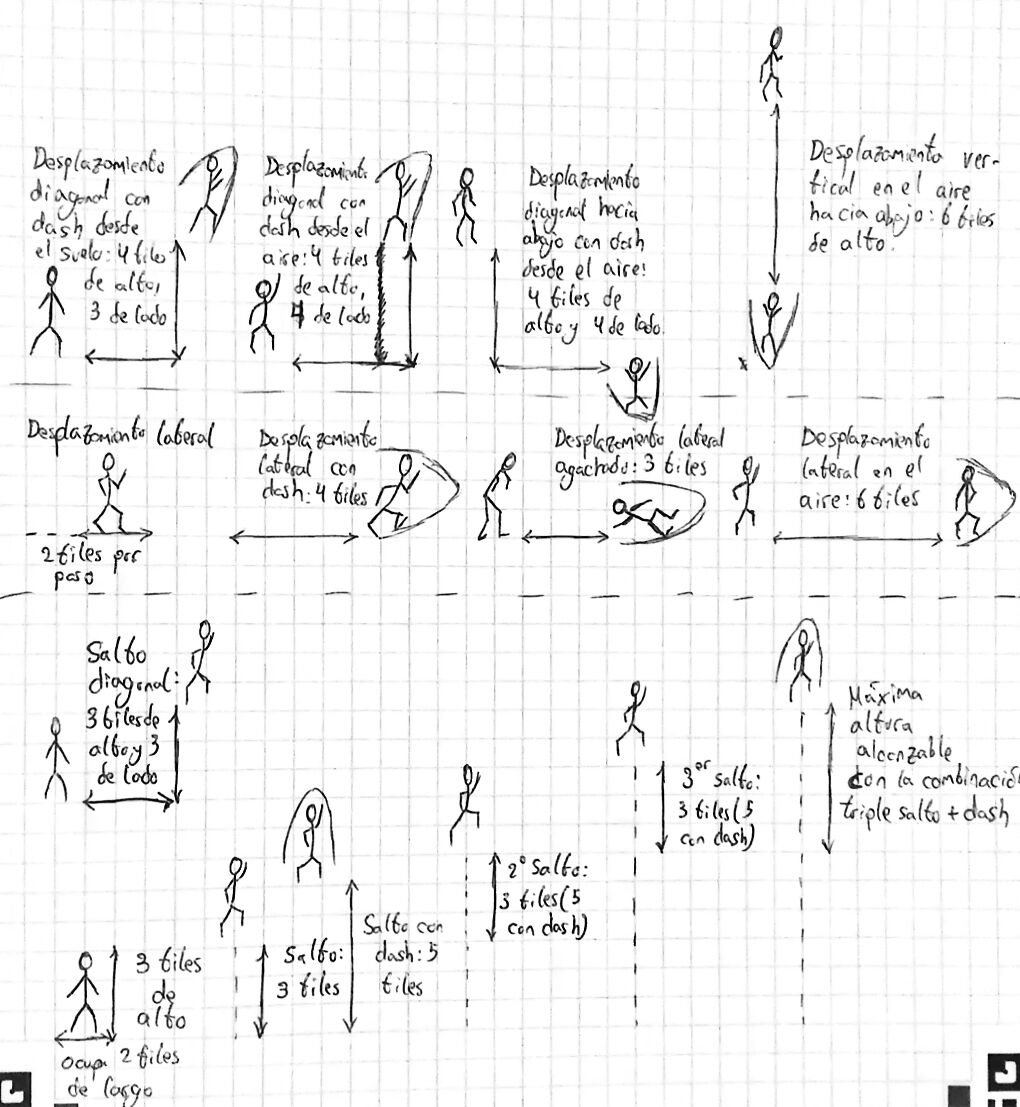 Desplazamiento
diagonal con
dash desde
el suelo: 4 tiles
de alto,
3 de lado
Desplazamiento
diagonal con
dash desde el
aire: 4 tiles
de alto,
4 de lado
Desplazamiento
diagonal hacia
abajo con dash
desde el aire:
4 tiles de
alto y 4 de lado.
Desplazamiento ver-
tical en el aire
hacia abajo: 6 tiles
de alto.
Desplazamiento lateral
2 tiles por
paso
Desplazamiento
lateral con
dash: 4 tiles
Desplazamiento lateral
agachado: 3 tiles
Desplazamiento
lateral en el
aire: 6 tiles
Salto
diagonal:
3 tiles de
alto y 3
de lado
3 tiles
de
alto
ocupa 2 tiles
de largo
Salto:
3 tiles
Salto con
dash: 5
tiles
2º Salto:
3 tiles (5
con dash)
3er Salto:
3 tiles (5
con dash)
Máxima
altura
alcanzable
con la combinació
triple salto + dash